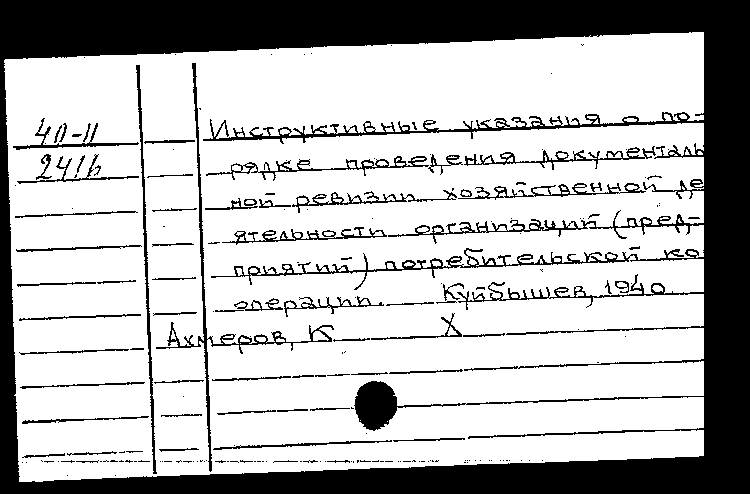 40-11
2416
Инструктивные указания о по-
рядке проведения документаль
ной ревизии хозяйственной де
ятельности организаций (пред-
приятий) потребительской ко
операции. Куйбышев, 1940
Ахмеров, К X